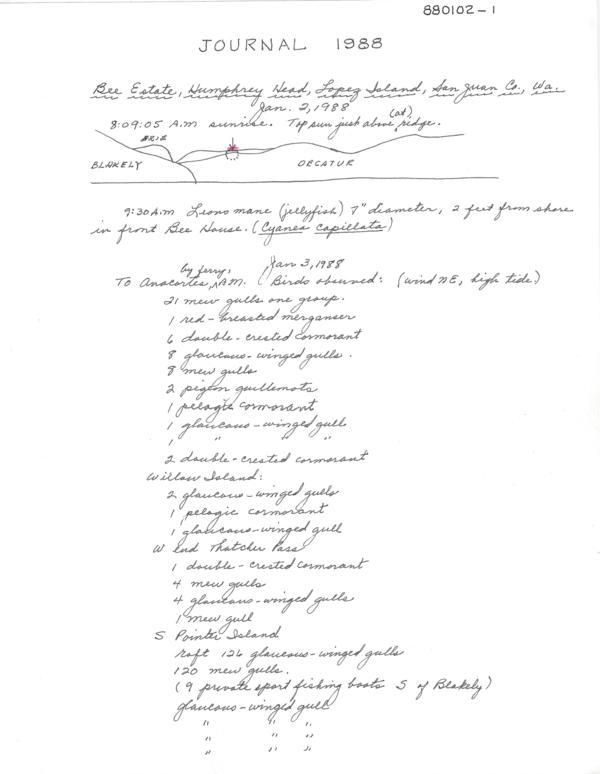 880102-1
JOURNAL 1988
Bee Estate, Humphrey Head, Lopez Island, San Juan Co., Wa.
Jan. 2, 1988
8:09:05 A.M sunrise. Top sun just above (at) ridge.
BLAKELY
DECATUR
9:30 A.M Lions mane (jellyfish) 7" diameter, 2 feet from shore
in front Bee House. (Cyanea capillata)
Jan 3, 1988
To Anacortes, by ferry, A.M. (Birds observed: (wind NE, high tide)
21 mew gulls one group.
1 red-breasted merganser
6 double-crested cormorant
8 glaucous-winged gulls.
8 mew gulls
2 pigeon guillemots
1 pelagic cormorant
1 glaucous-winged gull
1 " " "
2 double-crested cormorant
Willow Island:
2 glaucous-winged gulls
1 pelagic cormorant
1 glaucous-winged gull
W end Thatcher Pass
1 double-crested cormorant
4 mew gulls
4 glaucous-winged gulls
1 mew gull
S Pointer Island
raft 126 glaucous-winged gulls
120 mew gulls.
(9 private sport fishing boats S of Blakely)
glaucous-winged gull
" " "
" " "
" " "